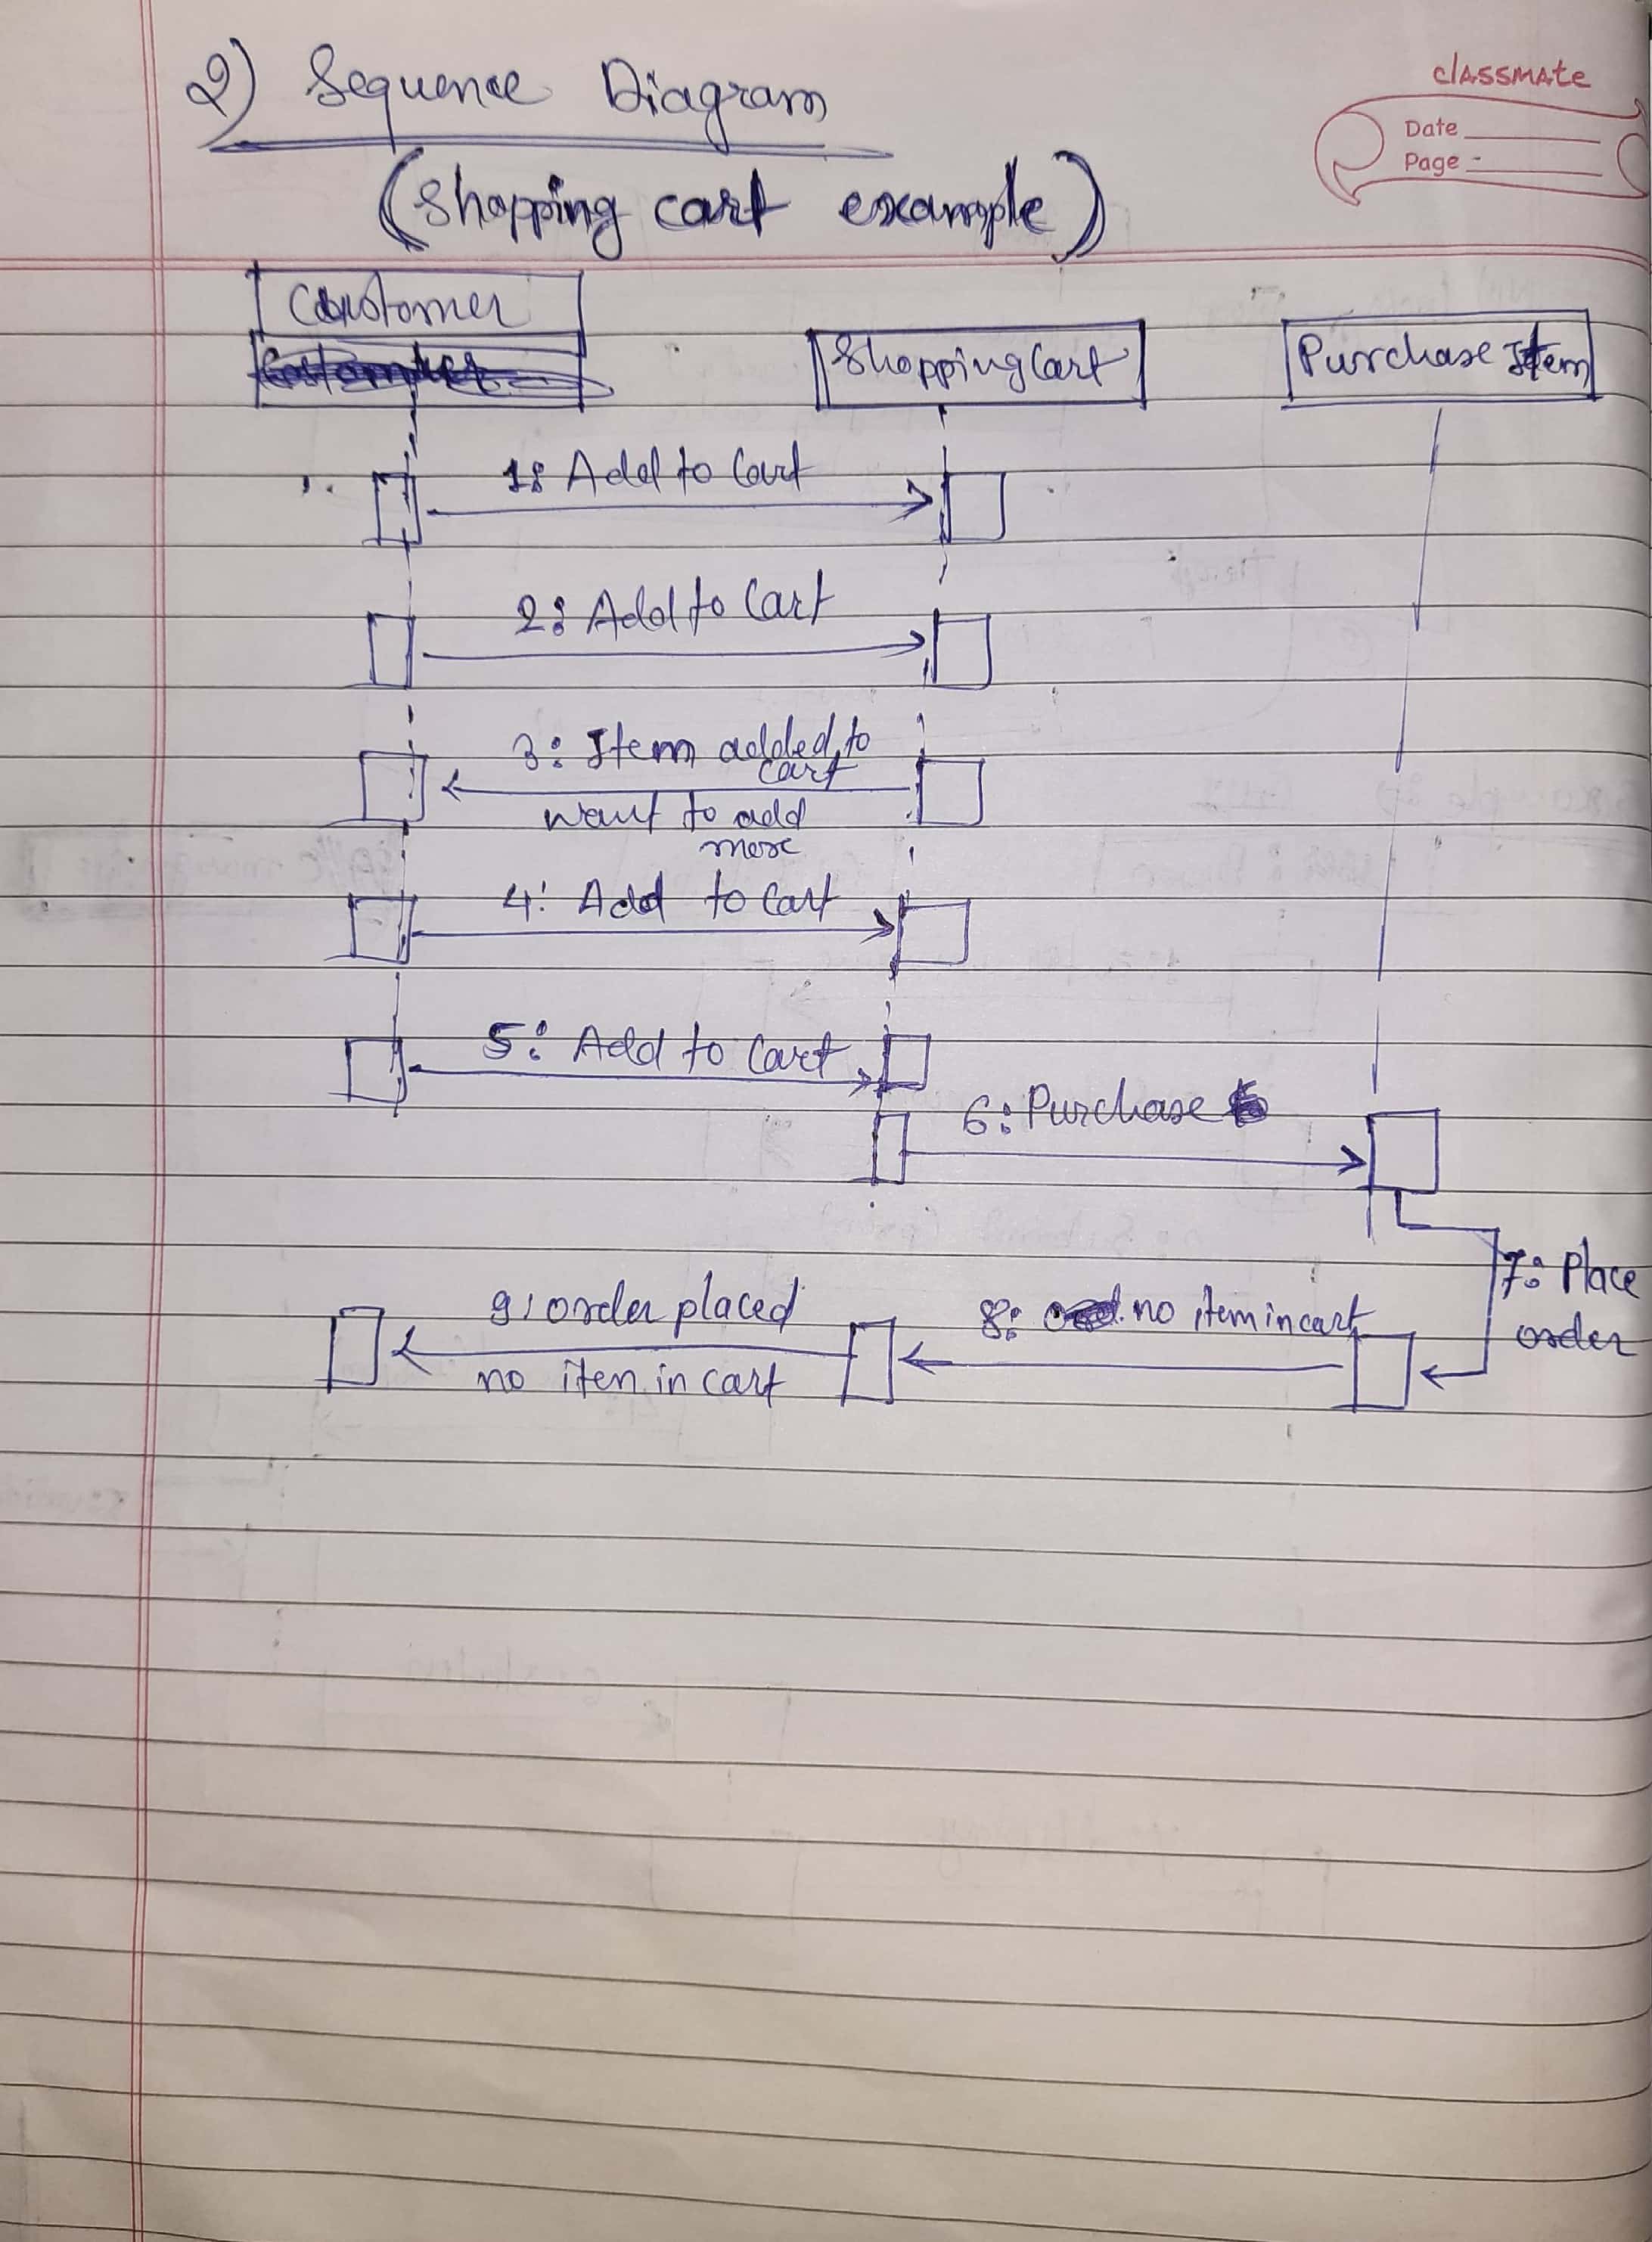 2) Sequence Diagram
classmate
Date
Page
(Shopping cart example)
Customer
Shopping Cart
Purchase Item
1: Add to Cart
2: Add to Cart
3: Item added to
cart
want to add
more
4: Add to Cart
5: Add to Cart
6: Purchase
7: Place
order
8: no item in cart
9: order placed
no iten in cart